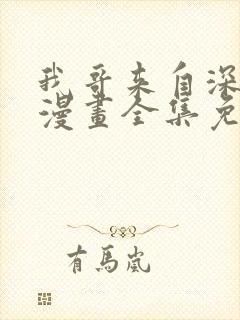 我哥来自深
漫畫全集免
有馬嵐